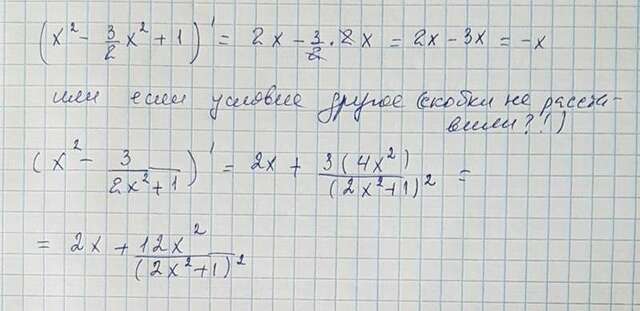 (x² - 3/2 x² + 1)' = 2x - 3/2 · 2x = 2x - 3x = -x
или если условие другое (скобки не расста-
вили?!)
(x² - 3/(2x² + 1))' = 2x + 3(4x²)/(2x²+1)² =
= 2x + 12x²/(2x²+1)²